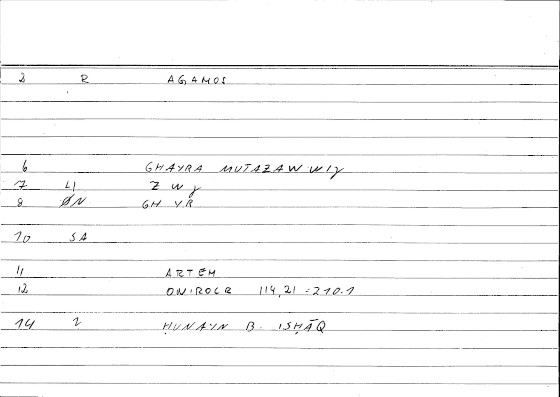 2 R AGAMOS
6 GHAYRA MUTAZAWWIJ
7 LI ZWJ
8 ØN GHYR
10 SA
11 ARTEM
12 ONIROCR 114,21 = 210.1
14 2 ḤUNAYN B. ISḤĀQ